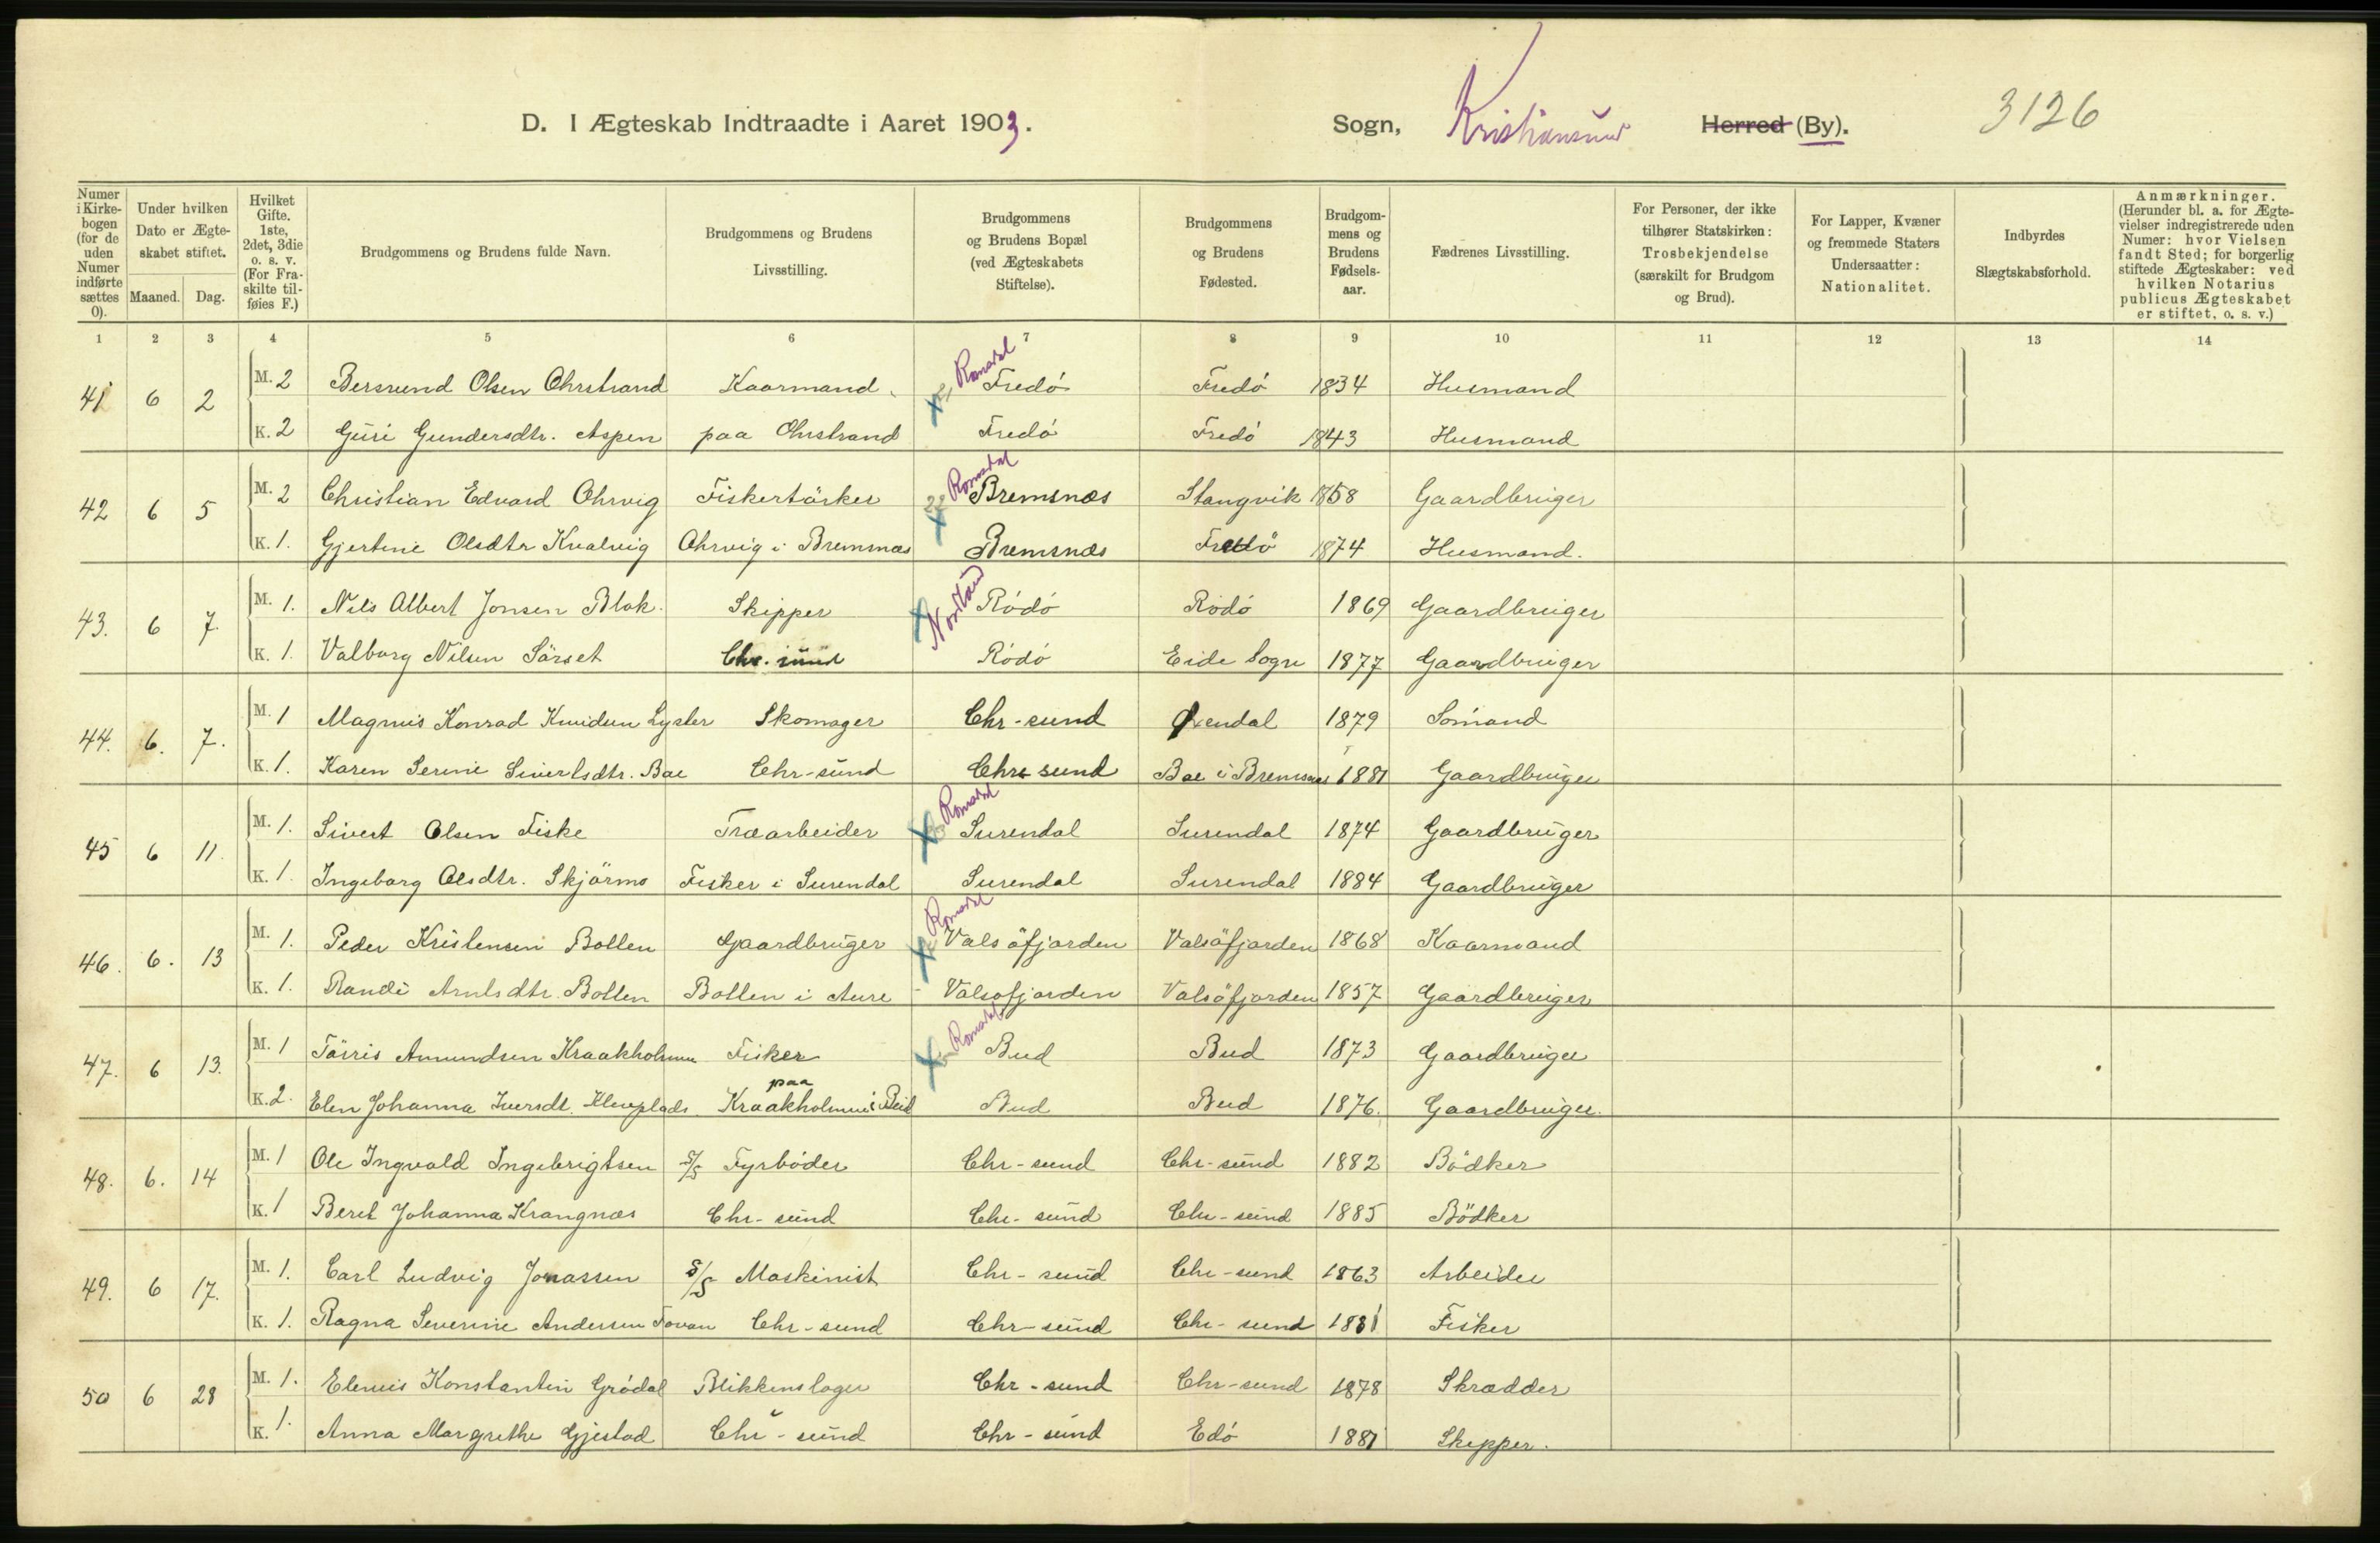 D. I Ægteskab Indtraadte i Aaret 1903. Sogn, Kristiansund Herred (By). 3126
Numer i Kirkebogen (for de uden Numer indførte sættes 0).
Under hvilken Dato er Ægteskabet stiftet.
Maaned. Dag.
Hvilket Gifte. 1ste, 2det, 3die o. s. v. (For Fraskilte tilføies F.)
Brudgommens og Brudens fulde Navn.
Brudgommens og Brudens Livsstilling.
Brudgommens og Brudens Bopæl (ved Ægteskabets Stiftelse).
Brudgommens og Brudens Fødested.
Brudgommens og Brudens Fødselsaar.
Fædrenes Livsstilling.
For Personer, der ikke tilhører Statskirken: Trosbekjendelse (særskilt for Brudgom og Brud).
For Lapper, Kvæner og fremmede Staters Undersaatter: Nationalitet.
Indbyrdes Slægtskabsforhold.
Anmærkninger. (Herunder bl. a. for Ægtevielser indregistrerede uden Numer: hvor Vielsen fandt Sted; for borgerlig stiftede Ægteskaber: ved hvilken Notarius publicus Ægteskabet er stiftet, o. s. v.)
1 2 3 4 5 6 7 8 9 10 11 12 13 14
Romsdal
41 6 2 M. 2 Bersvend Olsen Ohrstrand Kaarmand Fredö Fredö 1834 Husmand
K. 2 Guri Gundersdtr. Aspen paa Ohrstrand Fredö Fredö 1843 Husmand
Romsdal
42 6 5 M. 2 Christian Edvard Ohrvig Fiskertörker 22 Bremsnæs Stangvik 1858 Gaardbruger
K. 1. Gjertine Olsdtr Kvalvig Ohrvig i Bremsnæs Bremsnæs Fredö 1874 Husmand.
Nordland
43. 6 7. M. 1. Nils Albert Jonsen Blok. Skipper Rödö Rödö 1869 Gaardbruger
K. 1. Valborg Nilsen Särset Chr. sund Rödö Eide Sogn 1877 Gaardbruger
44. 6. 7. M. 1 Magnus Konrad Knudsen Lyster Skomager Chr-sund Øxendal 1879 Sömand
K. 1. Karen Serine Siverlsdtr. Bae Chr-sund Chr-sund Bae i Bremsnes 1881 Gaardbruger
Romsdal
45 6 11. M. 1. Sivert Olsen Fiske Træarbeider Surendal Surendal 1874 Gaardbruger
K. 1. Ingeborg Olsdtr. Skjörmo Fisker i Surendal Surendal Surendal 1884 Gaardbruger
Romsdal
46. 6. 13 M. 1. Peder Kristensen Bollen Gaardbruger Valsöfjorden Valsöfjorden 1868 Kaarmand
K. 1. Randi Arntsdtr. Bollen Bollen i Aure Valsöfjorden Valsöfjorden 1857 Gaardbruger
Romsdal
47. 6 13. M. 1 Törris Amundsen Kraakholmen Fisker Bud Bud 1873 Gaardbruger
K. 2. Elen Johanna Iversdt. paa Kraakholmen i Bud Bud Bud 1876. Gaardbruger.
48. 6. 14 M. 1 Ole Ingvald Ingebrigtsen S/S Fyrböder Chr-sund Chr-sund 1882 Bödker
K. 1 Beret Johanna Krangnæs Chr-sund Chr-sund Chr-sund 1885 Bödker
49. 6 17. M. 1. Carl Ludvig Jonassen S/S Maskinist Chr-sund Chr-sund 1863 Arbeider
K. 1. Ragna Severine Andersen Tovan Chr-sund Chr-sund Chr-sund 1881 Fisker
50 6 28 M. 1. Elenus Konstantin Grödal Blikkenslager Chr-sund Chr-sund 1878 Skrædder
K. 1. Anna Margrethe Gjestad Chr-sund Chr-sund Edö 1881 Skipper.